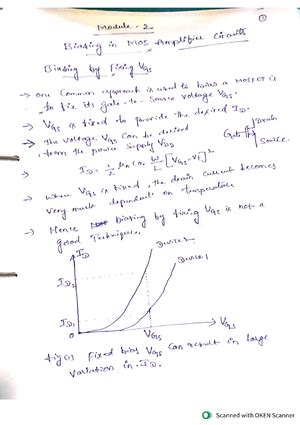 Module - 2
Biasing in MOS Amplifier Circuits
Biasing by fixing VGS
→ one Common approach is used to bias a MOSFET is
to fix its gate-to-Source voltage VGS.
→ VGS is fixed to provide the desired ID.
→ The voltage VGS can be derived
from the power supply VDD
Drain
Gate
Source
→ ID = 1/2 μn Cox W/L [VGS-Vt]²
→ when VGS is fixed, the drain current becomes
very much dependent on temperature
→ Hence biasing by fixing VGS is not a
good Technique.
ID
Device 2
Device 1
ID2
ID1
0
VGS
→ VGS
fig(1) fixed bias VGS can result in large
variation in ID.
Scanned with OKEN Scanner